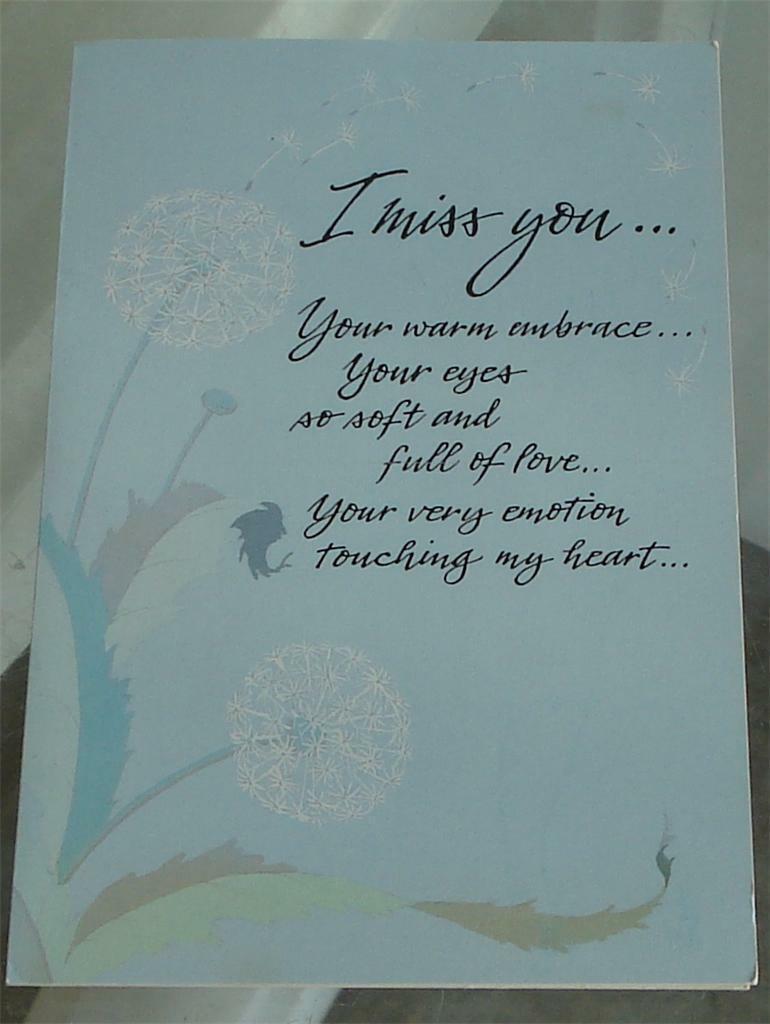 I miss you...
Your warm embrace...
Your eyes
so soft and
full of love...
Your very emotion
touching my heart...